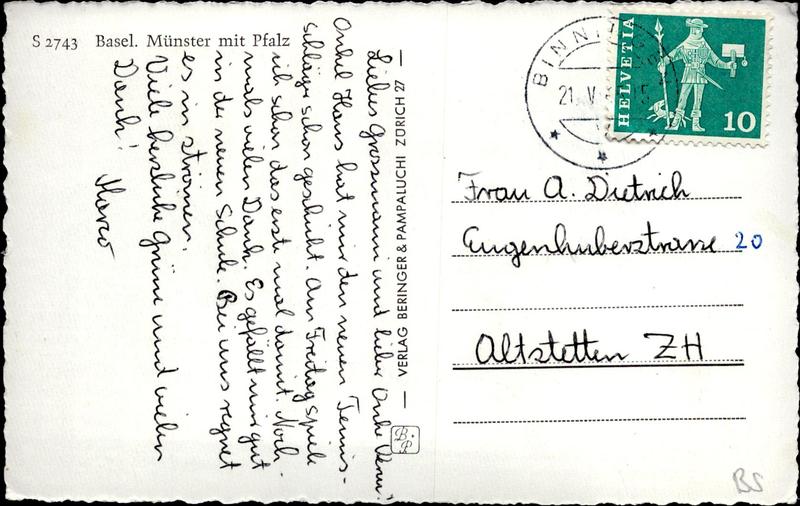 S 2743 Basel. Münster mit Pfalz
Liebes Grossmami und lieber Onkel
Onkel Hans hat mir den neuen Tennis-
schläger schon geschickt. Am Freitag spiele
ich schon das erste mal damit. Noch-
mals vielen Dank. Es gefällt mir gut
in der neuen Schule. Bei uns regnet
es in strömen.
Viele herzliche Grüsse und vielen
Dank!
Marco
VERLAG BERINGER & PAMPALUCHI ZÜRICH 27
B.P
BINNI
21. V
HELVETIA
10
Frau A. Dietrich
Eugenhuberstrasse 20
Altstetten ZH
BS